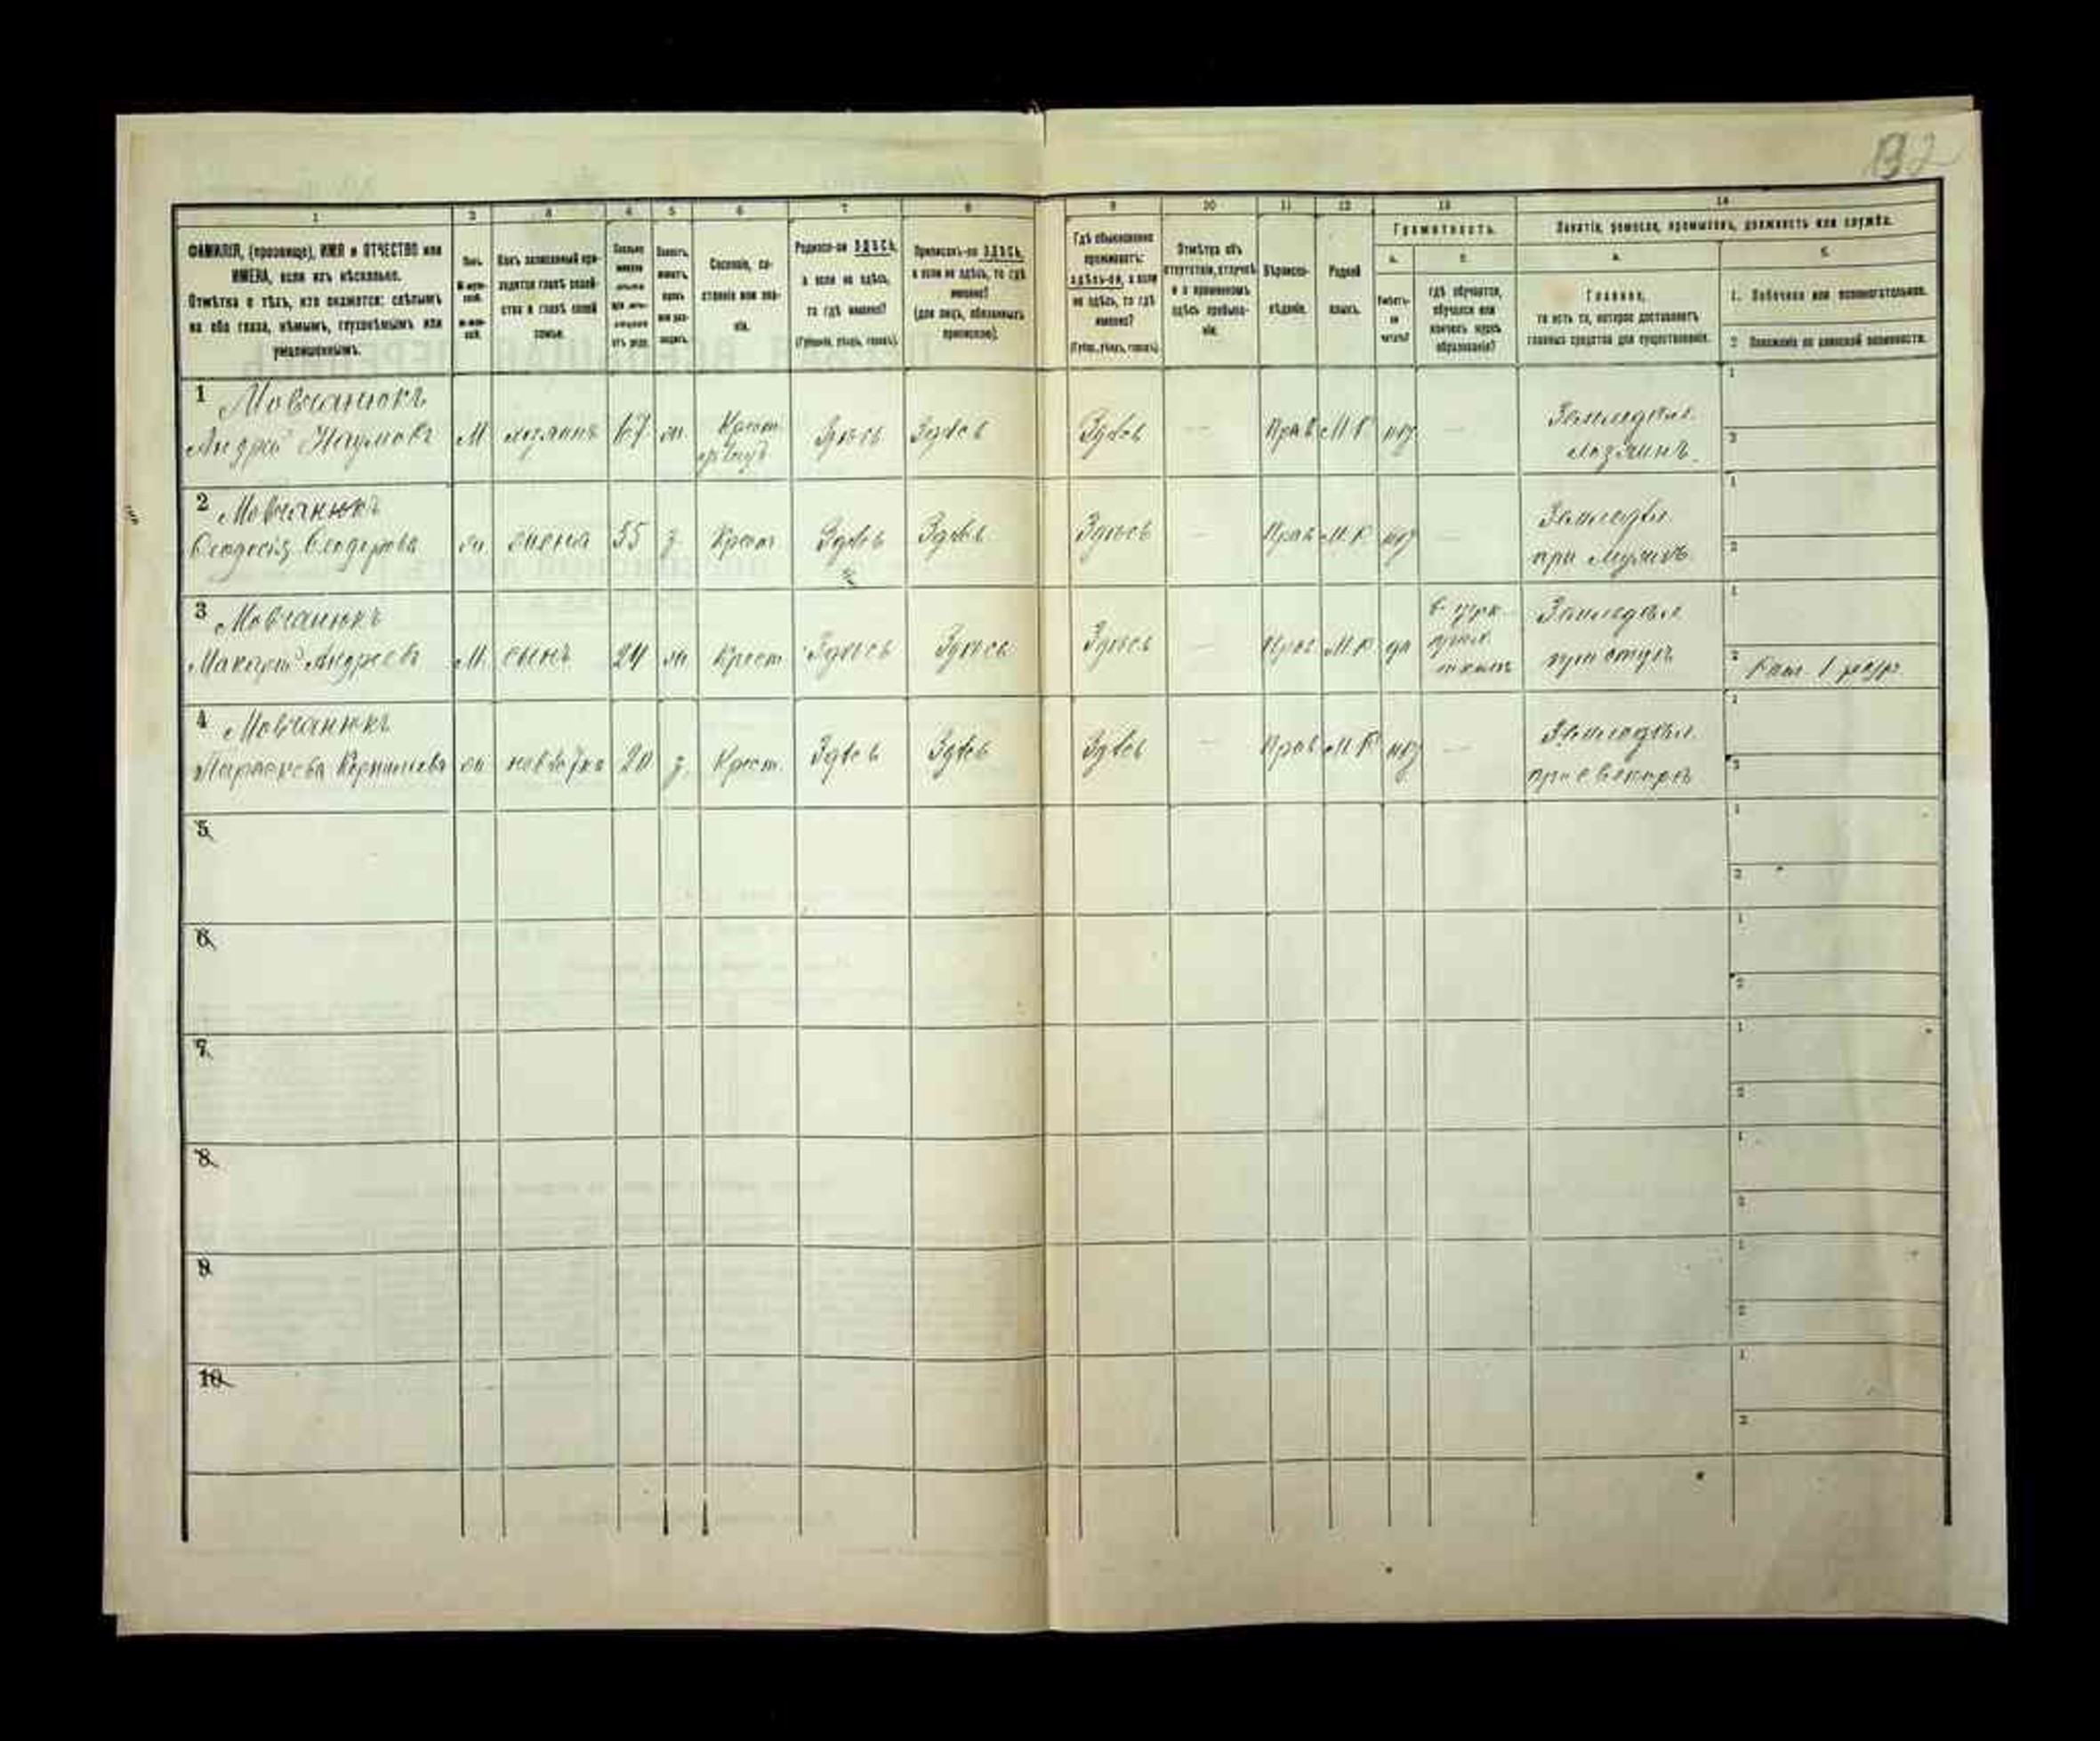 132
1
2
3
4
5
6
7
8
9
10
11
12
13
14
ФАМИЛІЯ, (прозвище), ИМЯ и ОТЧЕСТВО или
ИМЕНА, если ихъ нѣсколько.
Отмѣтка о тѣхъ, кто окажется: слѣпымъ
на оба глаза, нѣмымъ, глухонѣмымъ или
умалишеннымъ.
Полъ.
Какъ записанный при-
ходится главѣ хозяй-
ства и главѣ своей
семьи.
Сословіе, со-
стояніе или зва-
ніе.
Родился-ли ЗДѢСЬ,
а если не здѣсь,
то гдѣ именно?
(Губернія, уѣздъ, городъ).
Приписанъ-ли ЗДѢСЬ,
а если не здѣсь, то гдѣ
именно?
(для лицъ, обязанныхъ
припискою).
Гдѣ обыкновенно
проживаетъ:
здѣсь-ли, а если
не здѣсь, то гдѣ
именно?
(Губ., уѣздъ, городъ).
Отмѣтка объ
отсутствіи, отлучкѣ
и о временномъ
здѣсь пребыва-
ніи.
Вѣроиспо-
вѣданіе.
Родной
языкъ.
Грамотность.
а.
б.
Умѣетъ-
ли
читать?
гдѣ обучается,
обучался или
кончилъ курсъ
образованія?
Занятіе, ремесло, промыселъ, должность или служба.
а.
Главное,
то есть то, которое доставляетъ
главныя средства для существованія.
б.
1. Побочное или вспомогательное.
2. Положеніе по воинской повинности.
1 Мовчанюкъ
Андрей Наумовъ М хозяинъ 67 ж Крест. Здѣсь Здѣсь Здѣсь — Прав М.Р. нѣт — Земледѣл. хозяинъ.
2 Мовчанюкъ
Ѳеодосія Ѳеодорова ж жена 55 з Крест Здѣсь Здѣсь Здѣсь — Прав М.Р. нѣт — Земледѣл. при мужѣ
3 Мовчанюкъ
Андреевъ М. сынъ 24 ж Крест Здѣсь Здѣсь Здѣсь — Прав М.Р. да Земледѣл. при отцѣ
4 Мовчанюкъ
Параскева Корнилова ж невѣстка 20 з. Крест. Здѣсь Здѣсь Здѣсь — Прав М.Р. нѣт — Земледѣл. при свекорѣ
5
6
7
8
9
10